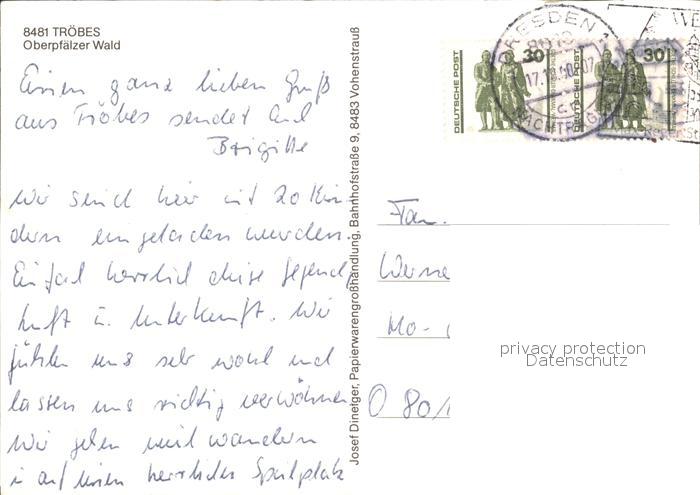 8481 TRÖBES
Oberpfälzer Wald
Einen ganz lieben Gruß
aus Tröbes sendet Euch
Brigitte
Wir sind hier mit 20 Kin-
dern eingeladen worden.
Einfach herrlich diese Gegend,
Luft u. Unterkunft. Wir
fühlen uns sehr wohl und
lassen uns richtig verwöhnen
Wir gehen viel wandern
u auf einen herrlichen Spielplatz
Josef Dinetger, Papierwarengroßhandlung, Bahnhofstraße 9, 8483 Vohenstrauß
DEUTSCHE POST 30
DEUTSCHE POST 30
DRESDEN
8010
Fam.
Werne
Mo-
O 80/1
privacy protection
Datenschutz